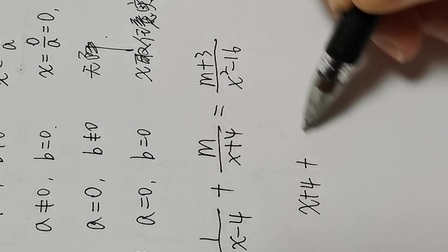 a≠0, b=0. x=0/a=0,
a=0, b≠0 无解
a=0, b=0 x取任意实
1/x-4 + m/x+4 = m+3/x²-16
x+4+